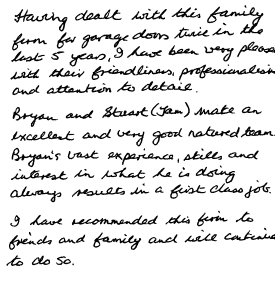 Having dealt with this family
firm for garage doors twice in the
last 5 years, I have been very pleased
with their friendliness, professionalism
and attention to detail.
Bryan and Stuart (Jam) make an
excellent and very good natured team.
Bryan's vast experience, skills and
interest in what he is doing
always results in a first class job.
I have recommended this firm to
friends and family and will continue
to do so.